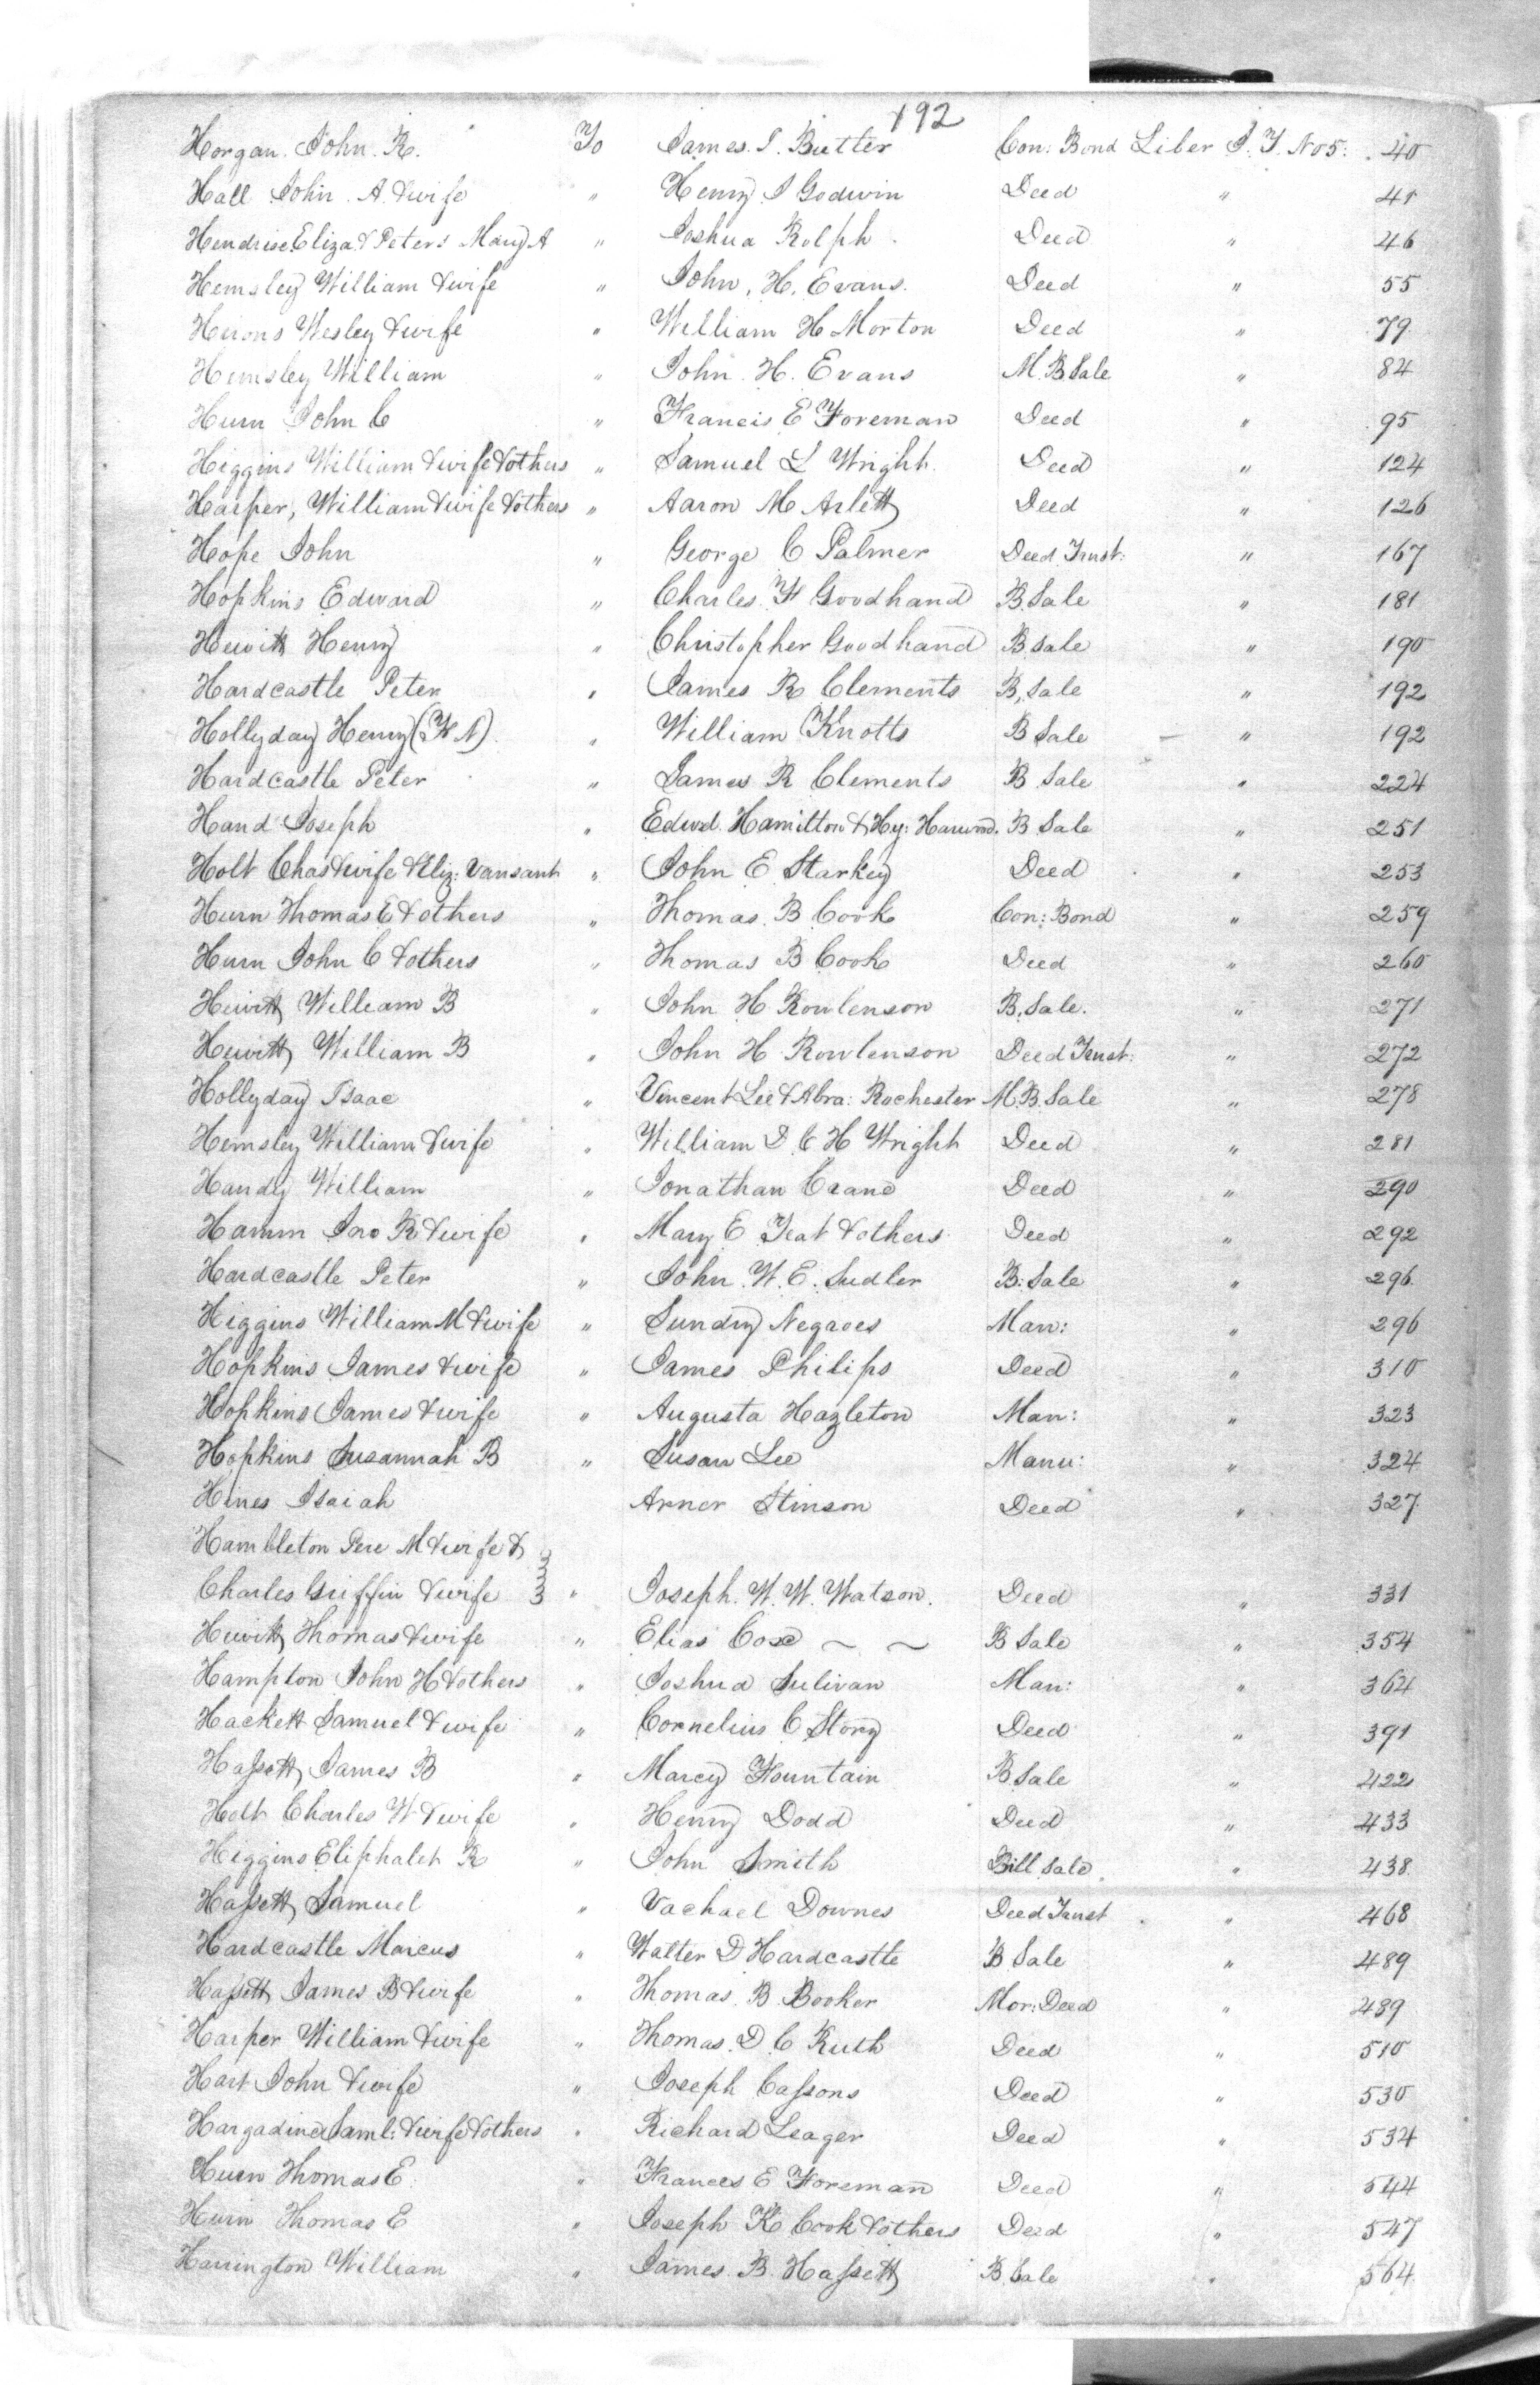 192
Horgan. John. R. To James. I. Butler Con: Bond Liber J. T. No 5: 40
Hall John. A. & wife " Henry I Godwin Deed " 41
Hendrise Eliza & Peters Mary A " Joshua Rolph Deed " 46
Hemsley William & wife " John, H, Evans. Deed " 55
Hirons Wesley & wife " William H Morton Deed " 79
Hemsley William " John. H. Evans M. B Sale " 84
Hurn John C " Francis E Foreman Deed " 95
Higgins William & wife & others " Samuel L Wright. Deed " 124
Harper, William & wife & others " Aaron M Arlett Deed " 126
Hope John " George C Palmer Deed Trust: " 167
Hopkins Edward " Charles. F Goodhand B. Sale " 181
Hewitt Henry " Christopher Goodhand B. Sale " 190
Hardcastle Peter " James R Clements B, Sale " 192
Hollyday Henry (F N). " William Knotts B Sale " 192
Hardcastle Peter " James R Clements B Sale " 224
Hand Joseph " Edwd. Hamilton & Hy: Harwood. B Sale " 251
Holt Chas & wife & Eliz: Vansant " John E Starkey Deed " 253
Hurn Thomas E & others " Thomas. B Cook Con: Bond " 259
Hurn John C & others " Thomas B Cook Deed " 260
Hewitt William B " John H Rowlenson B, Sale. " 271
Hewitt William B " John H Rowlenson Deed Trust: " 272
Hollyday Isaac " Vincent Lee & Abra: Rochester M. B. Sale " 278
Hemsley William & wife " William D C H Wright Deed " 281
Handy William " Jonathan Crane Deed " 290
Hamm Jno R & wife " Mary E Teat & others Deed " 292
Hardcastle Peter " John. W. E. Sudler B: Sale " 296
Higgins William M & wife " Sundry Negroes Man: " 296
Hopkins James & wife " James Philips Deed " 310
Hopkins James & wife " Augusta Hazleton Man: " 323
Hopkins Susannah B " Susan Lee Manu: " 324
Hines Isaiah Arner Stinson Deed " 327
Hambleton Pere M & wife &
Charles Griffin & wife " Joseph. W. W. Watson. Deed " 331
Hewitt Thomas & wife " Elias Coxe ~ ~ B Sale " 354
Hampton John H & others " Joshua Sulivan Man: " 364
Hackett Samuel & wife " Cornelius C Story Deed " 391
Hassett James B " Marcy Fountain B Sale " 422
Holt Charles W & wife " Henry Dodd Deed " 433
Higgins Eliphalet R " John Smith Bill Sale " 438
Hassett Samuel " Vachael Downes Deed Trust " 468
Hardcastle Marcus " Walter D Hardcastle B Sale " 489
Hassett James B & wife " Thomas. B. Booker Mor: Deed " 489
Harper William & wife " Thomas. D. C Ruth Deed " 510
Hart John & wife " Joseph Cassons Deed " 530
Hargadine Saml: & wife & others " Richard Leager Deed " 534
Hurn Thomas E. " Frances E Foreman Deed " 544
Hurn Thomas E " Joseph K Cook & others Deed " 547
Harrington William " James. B. Hassett B. Sale " 564